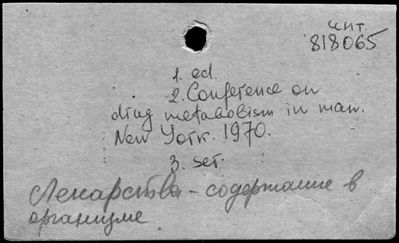 инт.
818065
1. ed.
2. Conference on
drug metabolism in man.
New York. 1970.
3. ser.
Лекарства - содержание в
организме